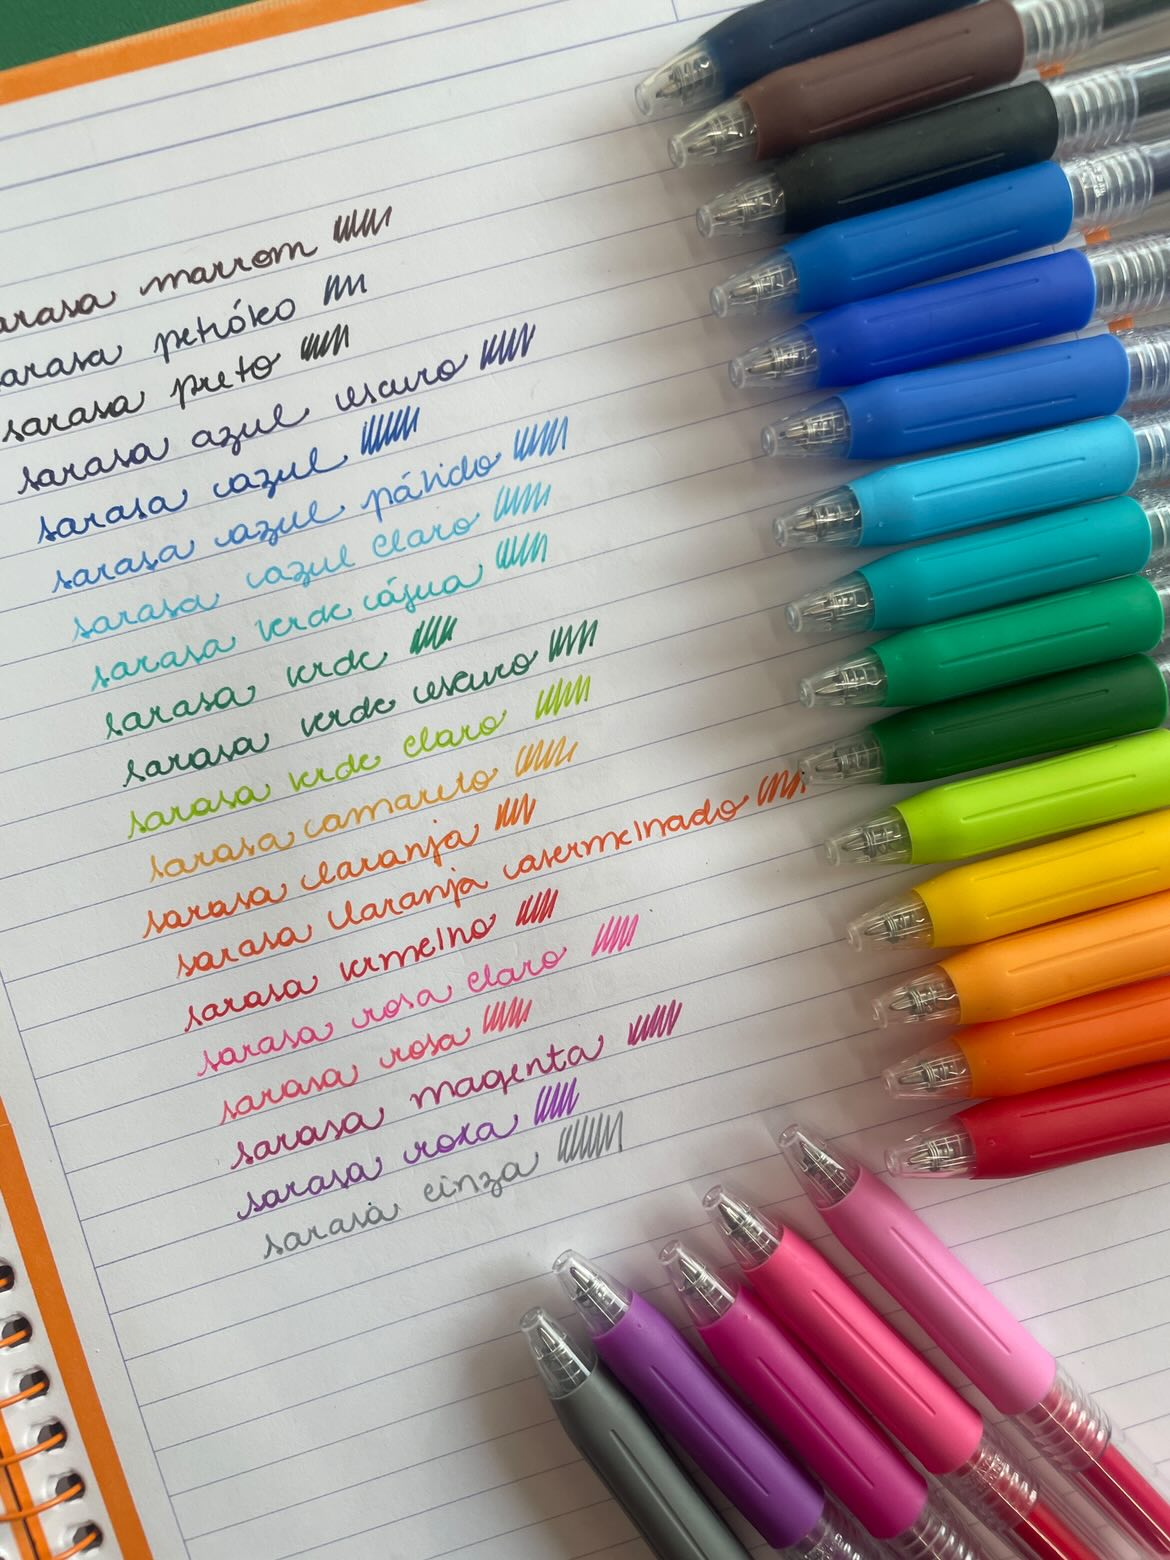 arasa marrom
arasa petróleo
sarasa preto
sarasa azul escuro
sarasa azul
sarasa azul pálido
sarasa azul claro
sarasa verde água
sarasa verde
sarasa verde escuro
sarasa verde claro
sarasa amarelo
sarasa laranja
sarasa laranja avermelhado
sarasa vermelho
sarasa rosa claro
sarasa rosa
sarasa magenta
sarasa roxa
sarasa cinza